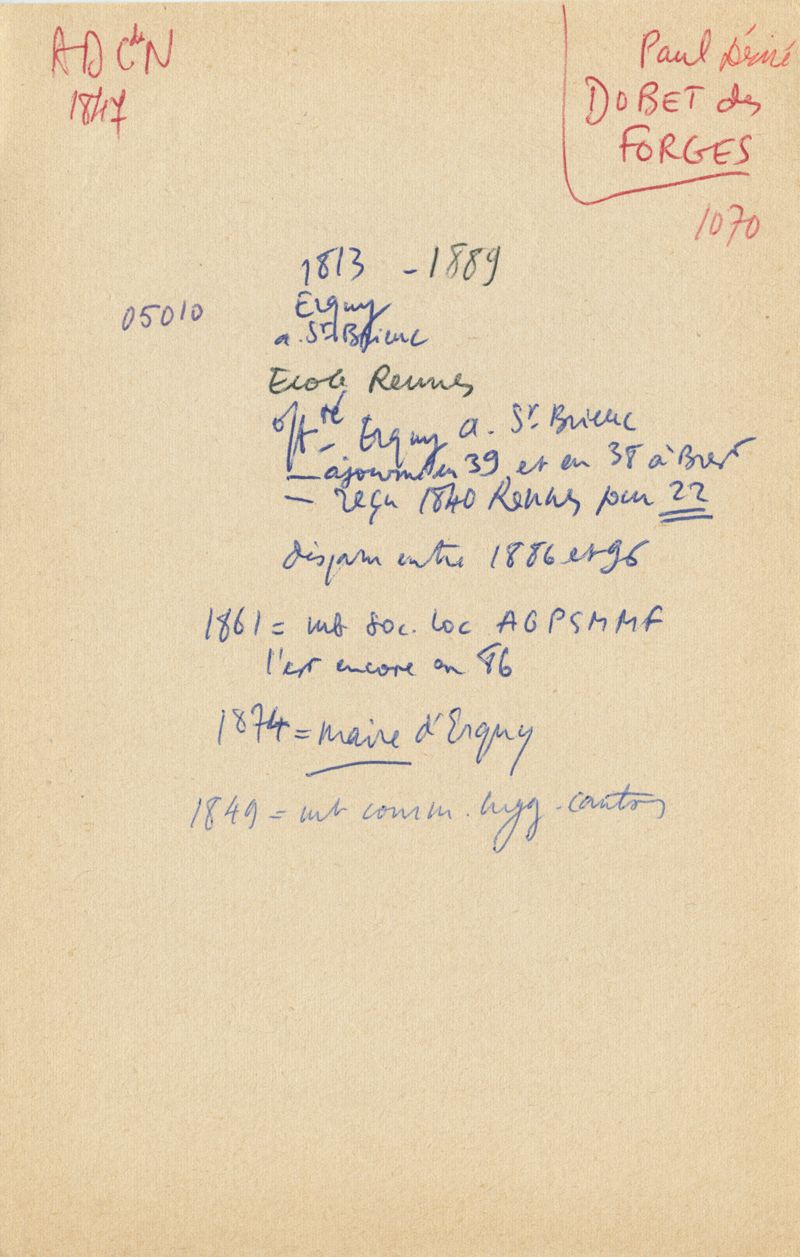 AD CduN
1847
Paul Désiré
DOBET des
FORGES
1070
1813 - 1889
05010
Erquy
a. St Brieuc
Ecole Rennes
offté Erquy a. St Brieuc
— ajourné en 39 et en 38 à Brest
— reçu 1840 Rennes pour 22
disparu entre 1886 et 96
1861 = mb soc. loc AGPSMMF
l'est encore en 86
1874 = maire d'Erquy
1849 = mb comm. hyg. canton